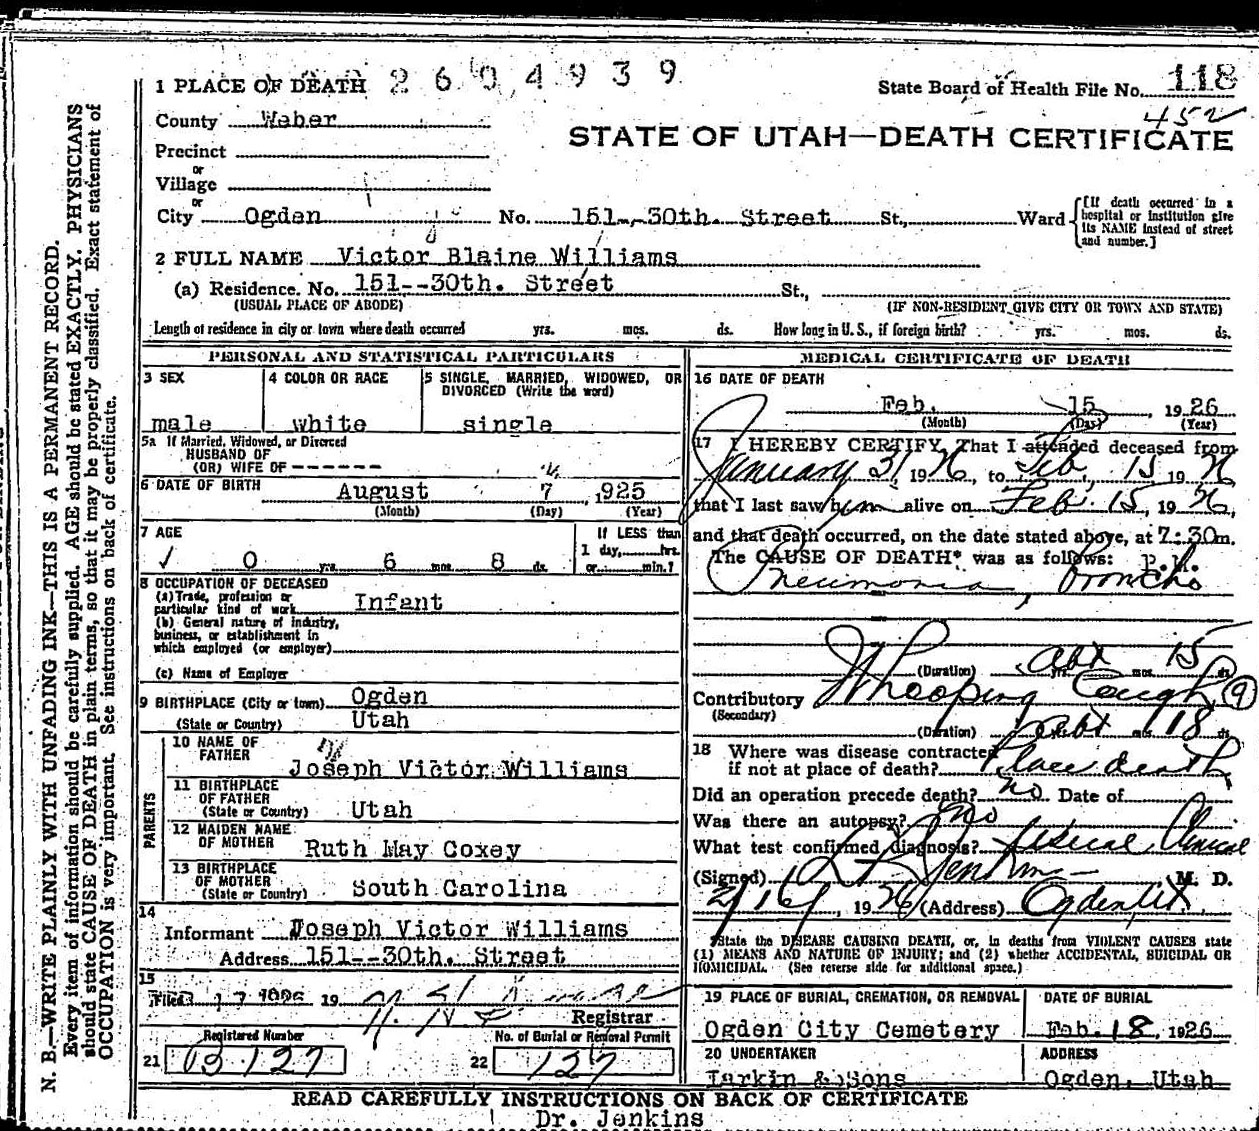 1 PLACE OF DEATH 2604939
State Board of Health File No. 118
452
County Weber
STATE OF UTAH—DEATH CERTIFICATE
Precinct
or
Village
or
City Ogden No. 151--30th. Street St., Ward
[If death occurred in a hospital or institution give its NAME instead of street and number.]
2 FULL NAME Victor Blaine Williams
(a) Residence. No. 151--30th. Street St.,
(USUAL PLACE OF ABODE) (IF NON-RESIDENT GIVE CITY OR TOWN AND STATE)
Length of residence in city or town where death occurred yrs. mos. ds. How long in U. S., if foreign birth? yrs. mos. ds.
PERSONAL AND STATISTICAL PARTICULARS
3 SEX 4 COLOR OR RACE 5 SINGLE, MARRIED, WIDOWED, OR
DIVORCED (Write the word)
male white single
5a If Married, Widowed, or Divorced
HUSBAND OF
(OR) WIFE OF -------
6 DATE OF BIRTH August 7 1925
(Month) (Day) (Year)
7 AGE If LESS than
1 day, hrs.
0 yrs. 6 mos. 8 ds. or min.?
8 OCCUPATION OF DECEASED
(a) Trade, profession or
particular kind of work Infant
(b) General nature of industry,
business, or establishment in
which employed (or employer)
(c) Name of Employer
9 BIRTHPLACE (City or town) Ogden
(State or Country) Utah
PARENTS
10 NAME OF
FATHER Joseph Victor Williams
11 BIRTHPLACE
OF FATHER
(State or Country) Utah
12 MAIDEN NAME
OF MOTHER Ruth May Coxey
13 BIRTHPLACE
OF MOTHER
(State or Country) South Carolina
14
Informant Joseph Victor Williams
Address 151--30th. Street
15
Filed 17 1926 19
Registrar
Registered Number No. of Burial or Removal Permit
21 B.127 22 127
MEDICAL CERTIFICATE OF DEATH
16 DATE OF DEATH
Feb. 15, 1926
(Month) (Day) (Year)
17 I HEREBY CERTIFY, That I attended deceased from
January 31, 1926, to Feb, 15 1926
that I last saw him alive on Feb. 15, 1926,
and that death occurred, on the date stated above, at 7:30m.
The CAUSE OF DEATH* was as follows: P.M.
Pneumonia, Broncho
(Duration) yrs. abt mos. 15 ds.
Contributory Whooping Cough 9
(Secondary)
(Duration) yrs. abt mos. 18 ds.
18 Where was disease contracted
if not at place of death? Place death
Did an operation precede death? no Date of
Was there an autopsy? no
What test confirmed diagnosis? Clinical
(Signed) Jenkins M. D.
2/16, 1926 (Address) Ogden, Ut.
*State the DISEASE CAUSING DEATH, or, in deaths from VIOLENT CAUSES state
(1) MEANS AND NATURE OF INJURY; and (2) whether ACCIDENTAL, SUICIDAL OR
HOMICIDAL. (See reverse side for additional space.)
19 PLACE OF BURIAL, CREMATION, OR REMOVAL DATE OF BURIAL
Ogden City Cemetery Feb. 18, 1926
20 UNDERTAKER ADDRESS
Larkin & Sons Ogden, Utah
READ CAREFULLY INSTRUCTIONS ON BACK OF CERTIFICATE
Dr. Jenkins
N. B.—WRITE PLAINLY WITH UNFADING INK—THIS IS A PERMANENT RECORD.
Every item of information should be carefully supplied. AGE should be stated EXACTLY. PHYSICIANS
should state CAUSE OF DEATH in plain terms, so that it may be properly classified. Exact statement of
OCCUPATION is very important. See instructions on back of certificate.